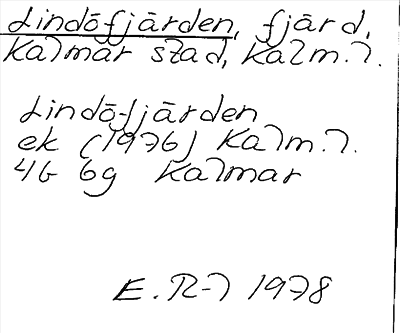 Lindöfjärden, fjärd,
Kalmar stad, Kalm.l.
Lindö-fjärden
ek (1976) Kalm.l.
4G 6g Kalmar
E.R-l 1978